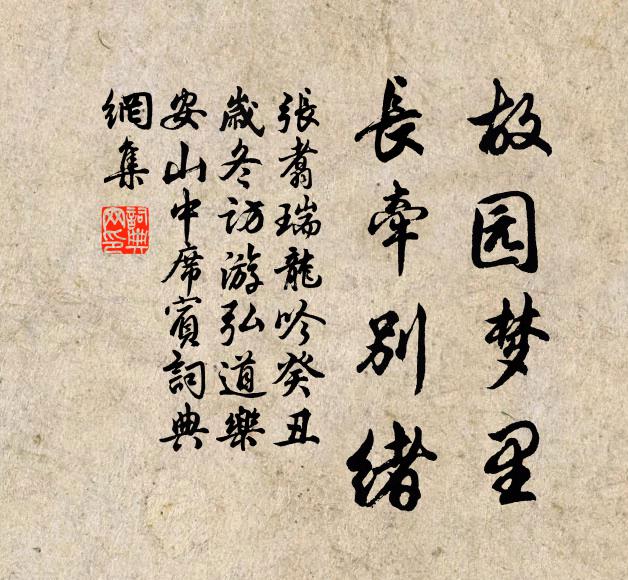 故园梦里
長牽別绪
張翥瑞龍吟癸丑
歲冬访游弘道樂
安山中席賓詞典
網集
詞典
网印